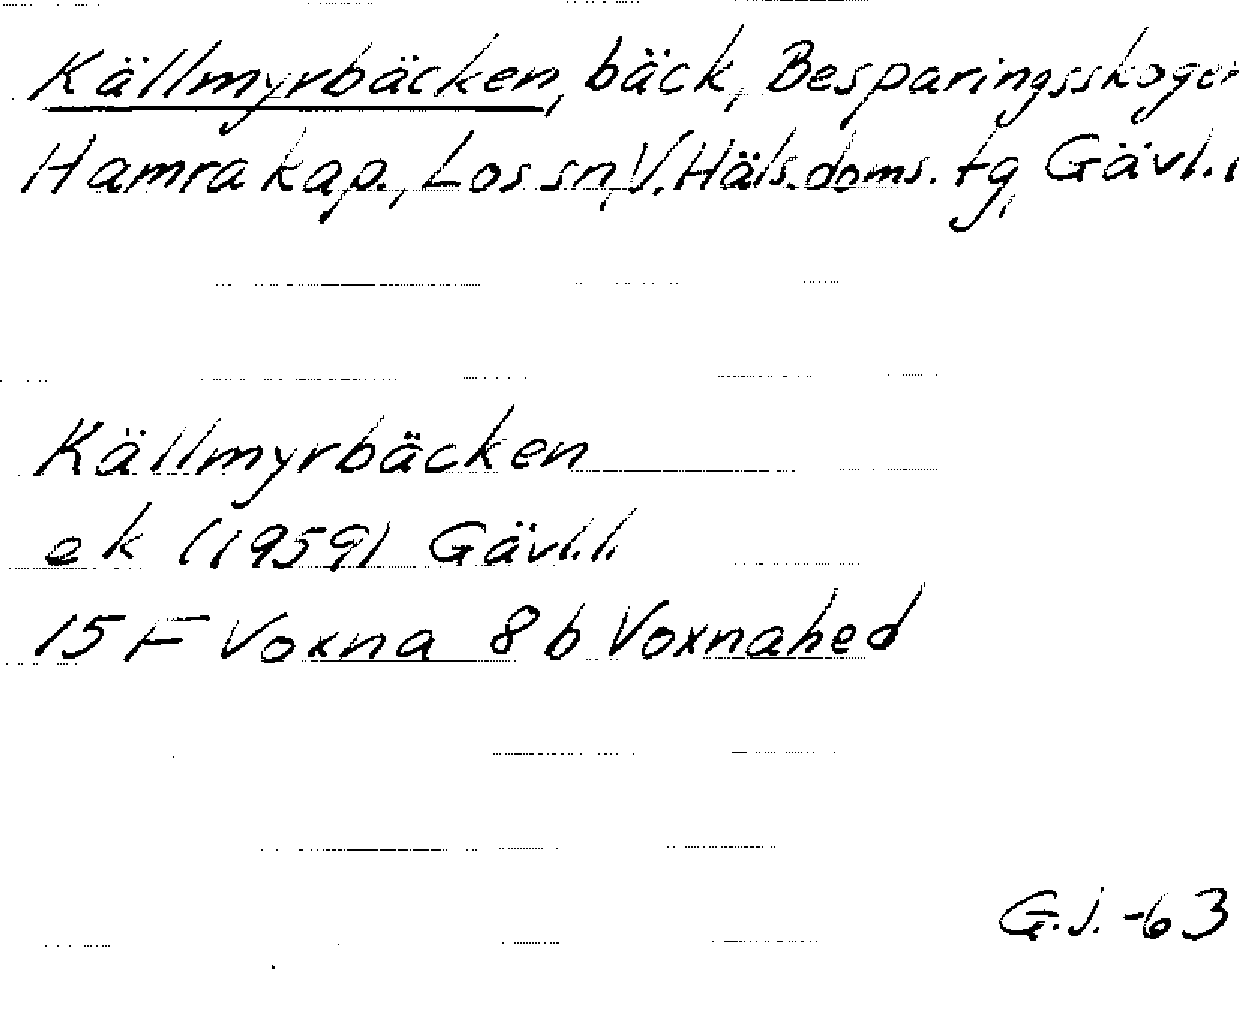 Källmyrbäcken, bäck, Besparingsskogen
Hamra kap., Los sn, V. Häls. doms. tg, Gävl. l
Källmyrbäcken
ek (1959) Gävl. l.
15 F Voxna 8 b Voxnahed
G.J. -63